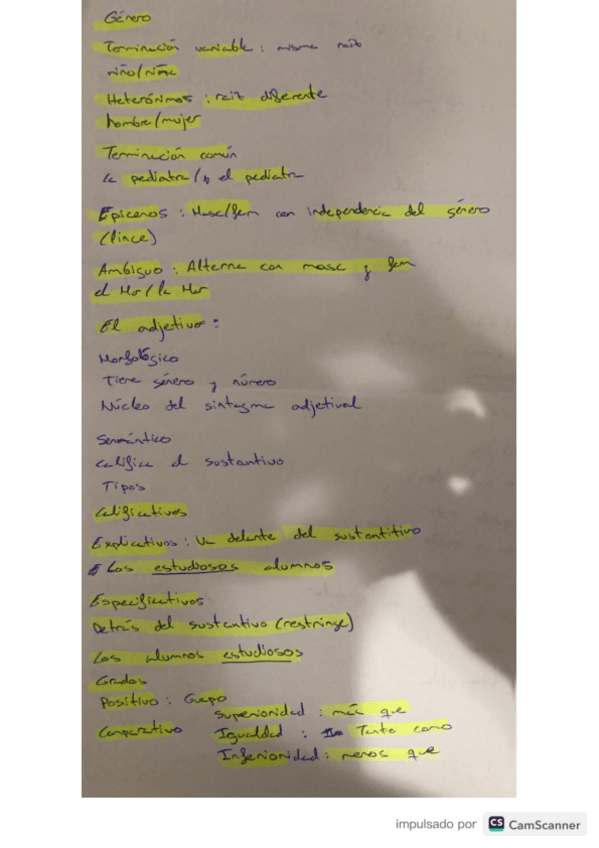 Género
Terminación variable : misma raiz
niño/niña
Heterónimos : raiz diferente
hombre/mujer
Terminación común
la pediatra / el pediatra
Epicenos : Masc/fem con independencia del género
(lince)
Ambiguo : Alterna con masc y fem
el Mar / la Mar
El adjetivo :
Morfológico
Tiene género y número
Núcleo del sintagma adjetival
Semántico
califica al sustantivo
Tipos
Calificativos
Explicativos : Va delante del sustantitivo
Los estudiosos alumnos
Especificativos
Detrás del sustantivo (restringe)
Los alumnos estudiosos
Grados
Positivo : Guapo
Superioridad : más que
Comparativo Igualdad : Tanto como
Inferioridad : menos que
impulsado por CS CamScanner